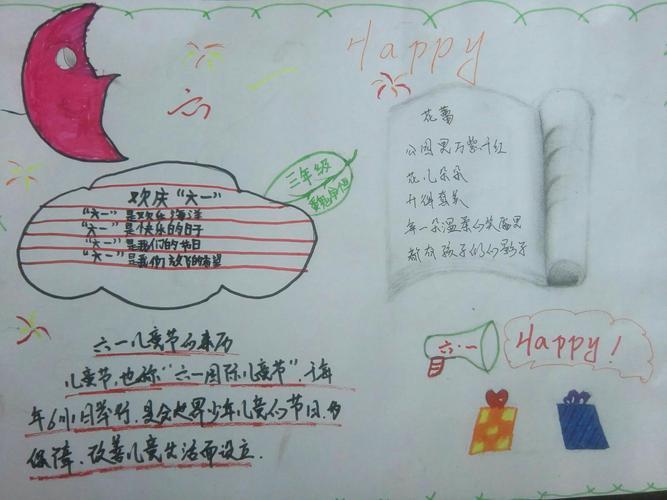 Happy
六一
三年级
欢庆“六一”
“六一”是欢乐的海洋
“六一”是快乐的日子
“六一”是我们的节日
“六一”是我们放飞的希望
花蕾
公园里万紫千红
花儿朵朵
都有孩子们的影子
六一儿童节的来历
儿童节，也称“六一国际儿童节”
年6月1日举行，是全世界少年儿童的节日，为
保障、改善儿童生活而设立.
六·一
Happy!